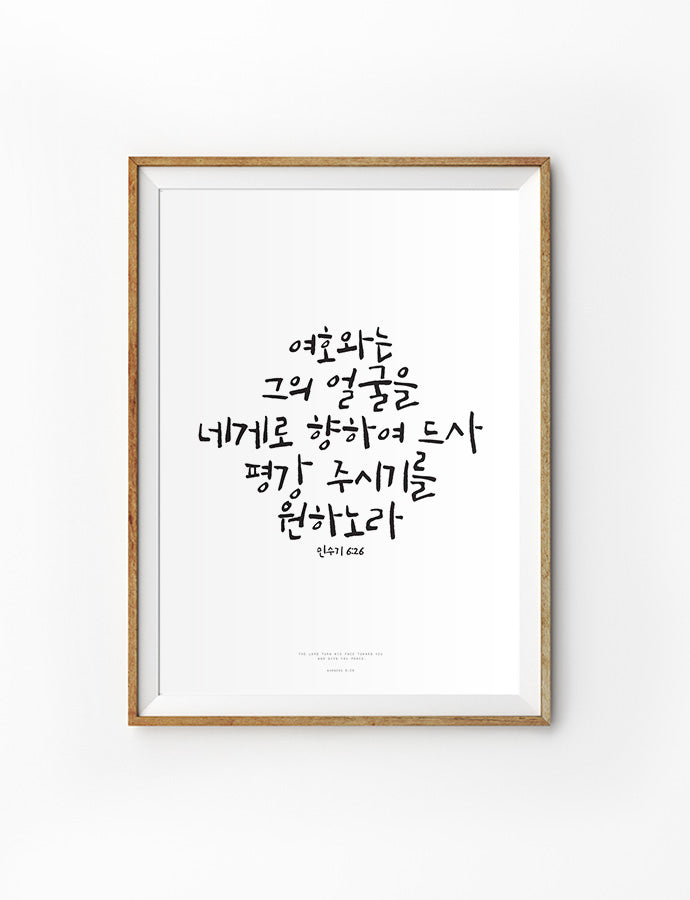 여호와는
그의 얼굴을
네게로 향하여 드사
평강 주시기를
원하노라
민수기 6:26
THE LORD TURN HIS FACE TOWARD YOU
AND GIVE YOU PEACE.
NUMBERS 6:26